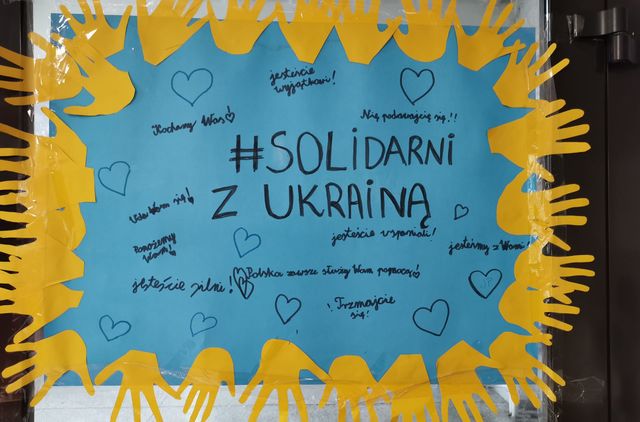 jesteście
wyjątkowi!
Kochamy Was!
Nie poddawajcie się!!
#SOLIDARNI
Z UKRAINĄ
Uda Wam się!
jesteście wspaniali!
Pomożemy
Wam!
jesteśmy z Wami!
jesteście silni!
Polska zawsze służy Wam pomocą
Trzymajcie
się!